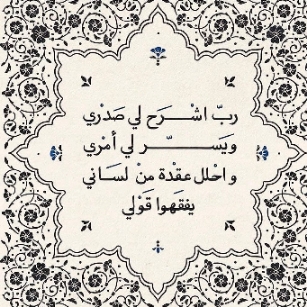 ربّ اشْـــرَح لي صَدْري
وَيَســـــّــــر لي أمْري
و احْلل عقْدة منْ لسَـاني
يفقَهوا قَوْلي